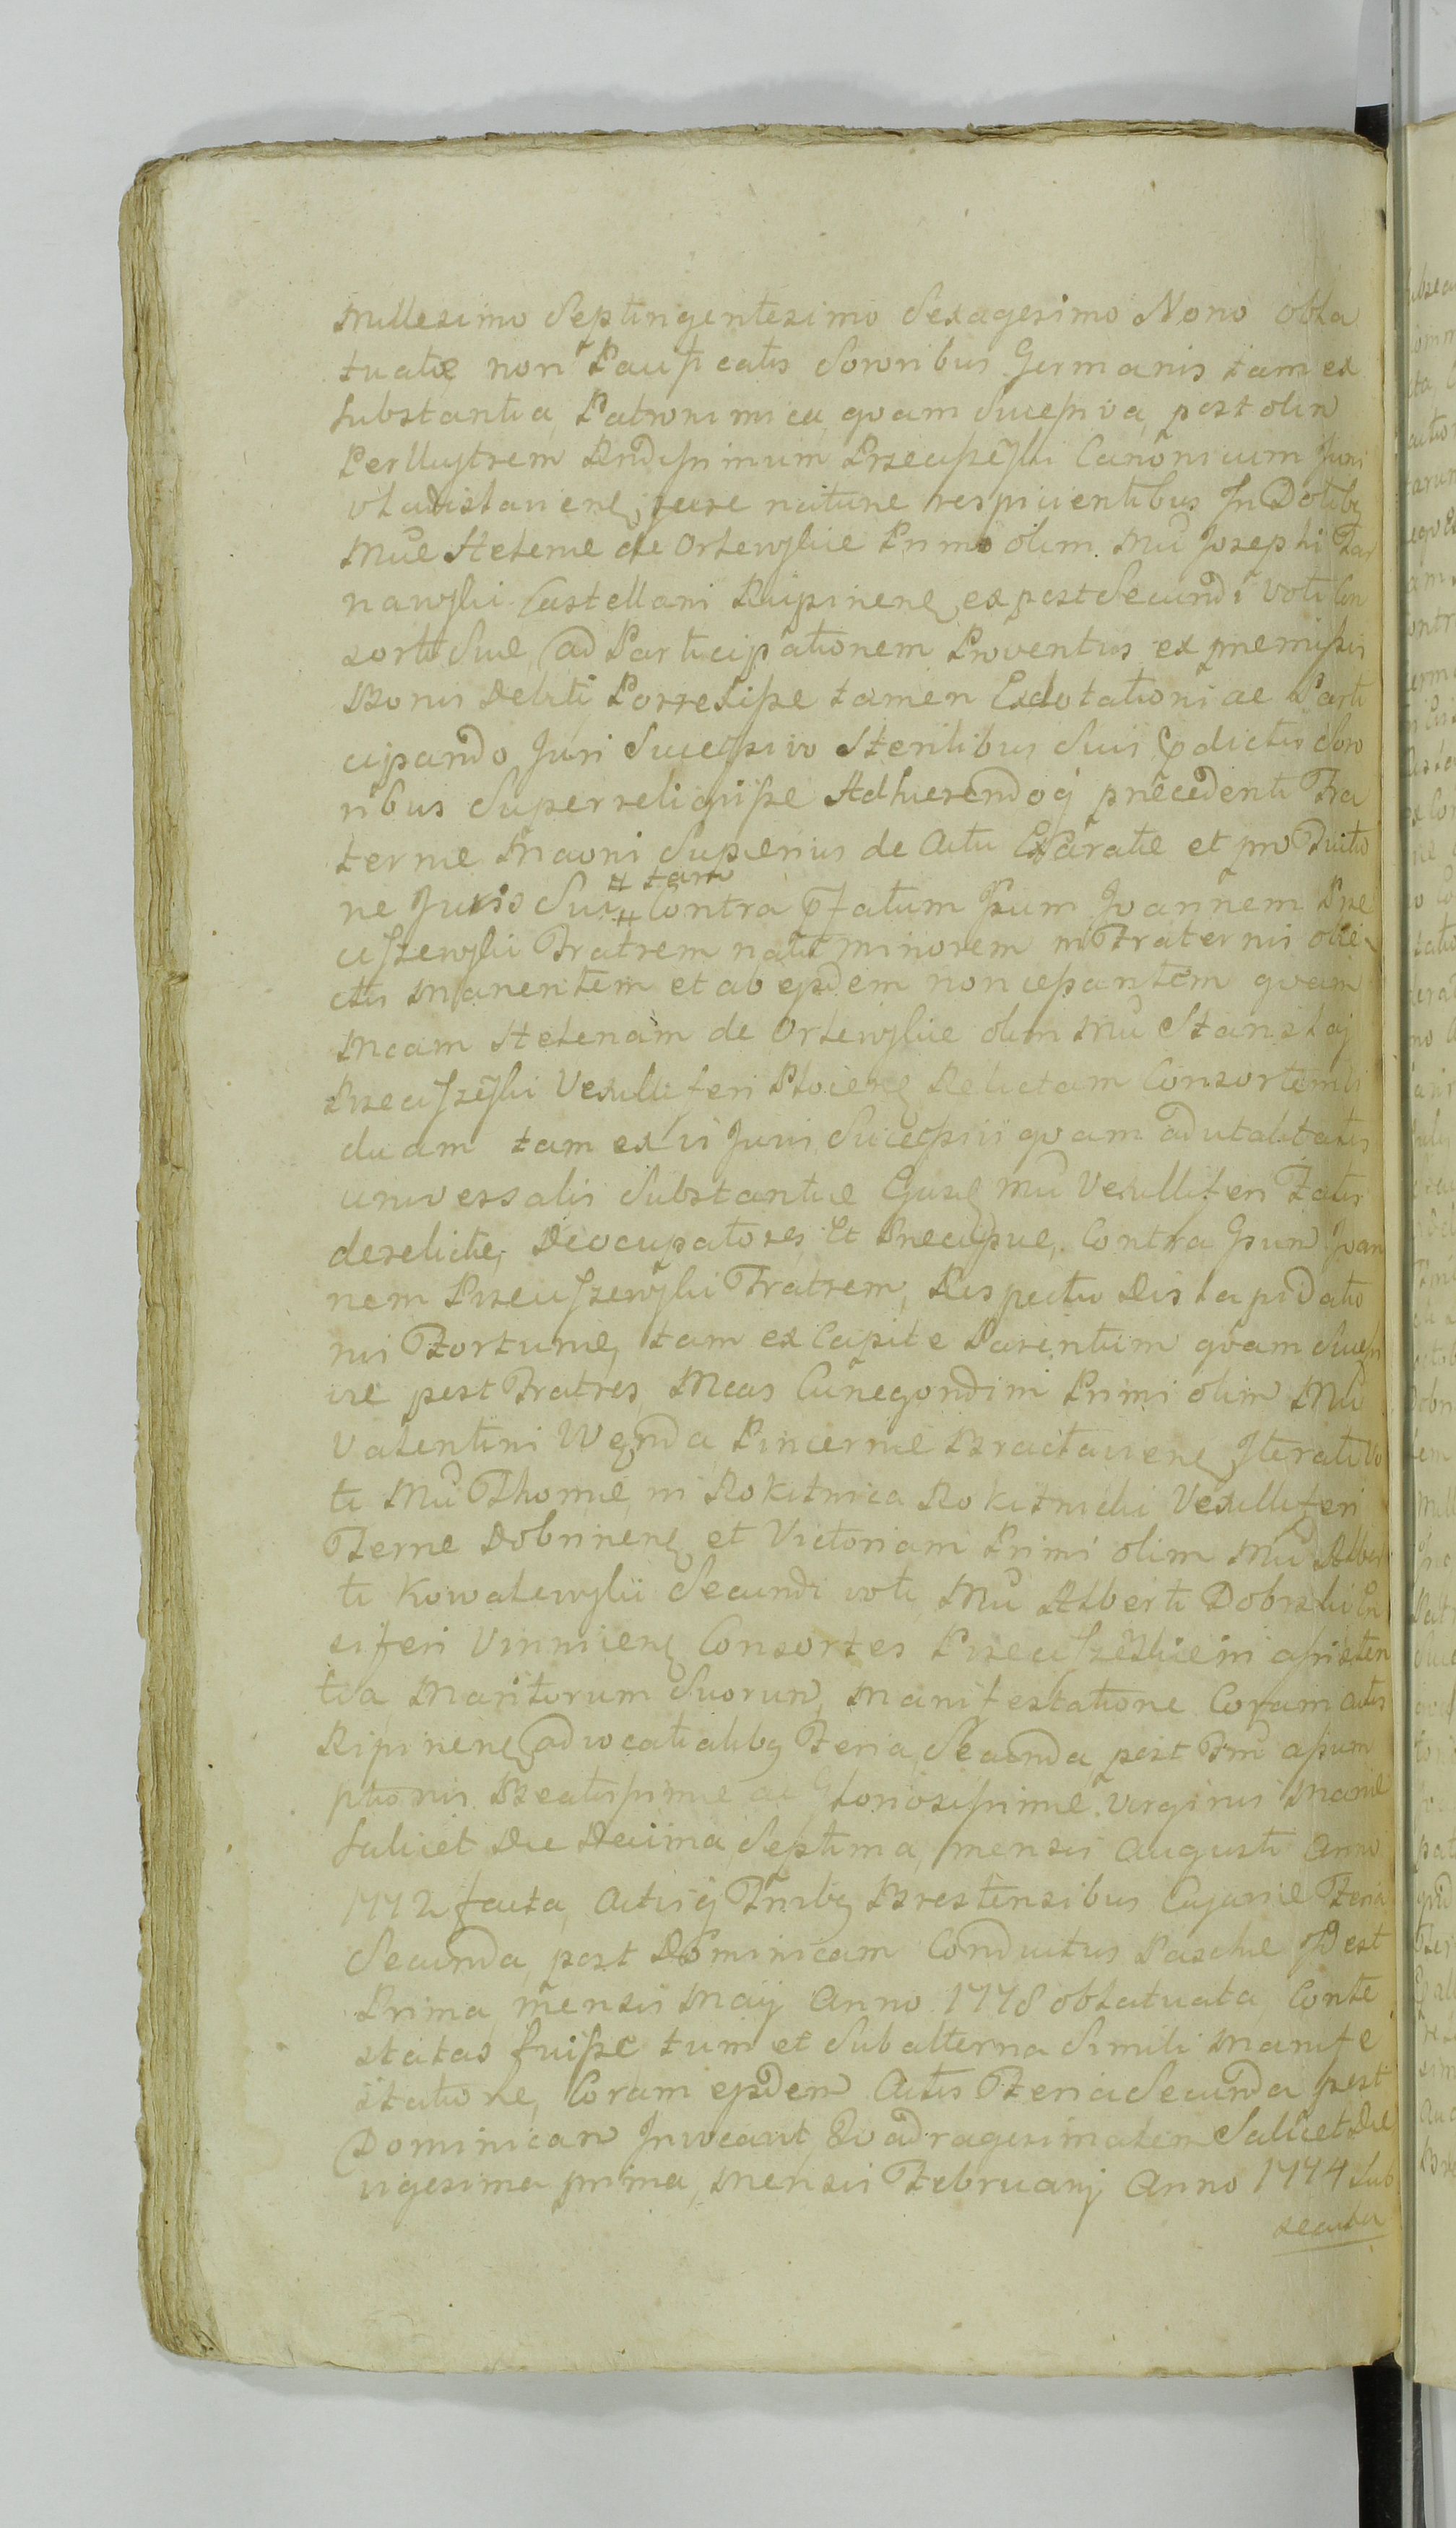 Millesimo Septingentesimo Sexagesimo Nono obla
tuatæ non Paup catis Sororibus Germanis tam ex
Substantia Patronimica qvam Succesiva post olim
Perllustrem Rndissimum Przeciszęski Canonicum
vladislaviens jure naturæ respicientibus In Dotibq
Mcæ Helenæ de Orłewskie Primo olim Mci Josephi Tar
nawski Castellani Rypinens ex post Secundi Voti Con
sortis Suæ ad Participationem Proventus ex præmissis
Bonis Debiti Porrexisse tamen Exdotationi ac Parti
cipando Juri Succesivo Sterilibus Suis prædictis Soro
ribus Superreliqvisse Adhærendoq præcedenti Fra
ternæ Maoni Superius de Actu Exaratæ et pro Tuitio
ne Juris Sui # # tam Contra pfatum Gsum Joannem Prze
ciszewski Fratrem natu minorem in Fraternis obie
ctis manentem et ab epdem non cessantem qvam
Mcam Helenam de Orłewskie olim Mci Stanslai
Przeciszęski Vexilliferi Plocens Relictam Consortem Vi
duam tam ex vi Juris Succesivi qvam advitalitatis
universalis Substantiæ Ejusd Mci Vexilliferi Fatis
derelictæ, Deocupatores Et Præcipue Contra Gsum Joan
nem Przeciszewski Fratrem, Respectu Dislapidatio
nis Fortunæ, tam ex Capite Parentum qvam Succesi
væ post Fratres, Mcas Cunegondim Primi olim Mci
Valentini Wenda Pincernæ Braclaviens Iterati Vo
ti Mci Thomæ in Rokitnica Rokitnicki Vexilliferi
Terræ Dobrinens et Victoriam Primi olim Mci Alber
ti Kowalewski Secundi voti Mci Alberti Dobrski En
siferi Vinniciens Consortes Przeciszęskie in assisten
tia Maritorum Suorum, Manifestatione Coram Actis
Ripinens advocatialibq Feria Secunda post Fm assum
ptionis Beatissimæ ac Gloriosissimæ Virginis Mariæ
Salicet Die Decima Septima mensis Augusti Anno
1772 facta, Actisq Tmibq Brestensibus Cujaviæ Feria
Secunda post Dominicam Conductus Paschæ id est
Prima mensis Maÿ Anno 1778 oblatuata Conte
statas fuisse tum et Subalterna Simili Manife
statione, Coram epdem Actis Feria Secunda post
Dominicam Invocavit Qvadragesimalem Salicet Die
vigesima prima, mensis Februarij Anno 1774 Sub
secuta